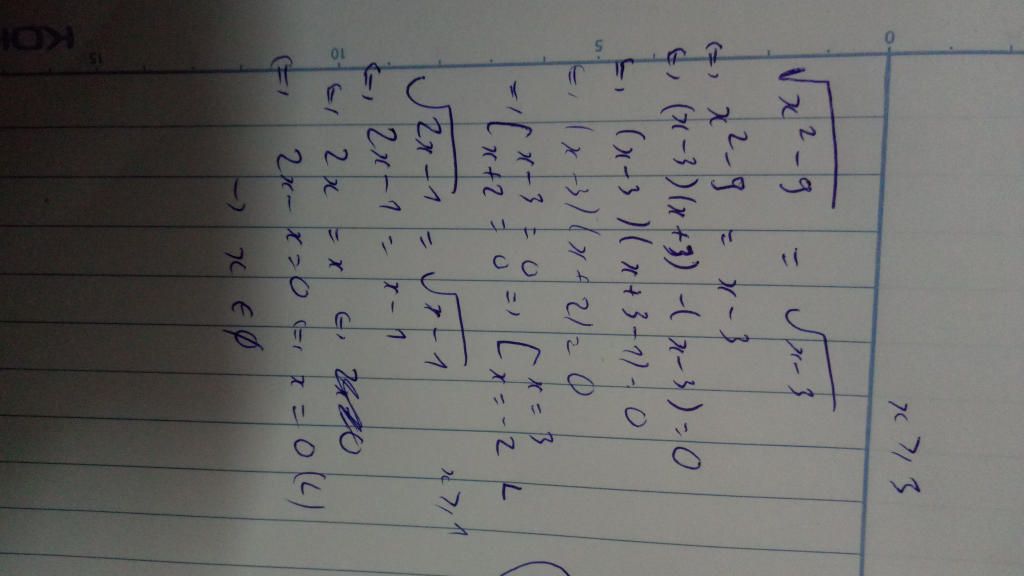 x ⩾ 3
√(x² - 9) = √(x - 3)
⇔ x² - 9 = x - 3
⇔ (x - 3)(x + 3) - (x - 3) = 0
⇔ (x - 3)(x + 3 - 1) = 0
⇔ (x - 3)(x + 2) = 0
⇒ [ x - 3 = 0 ⇒ [ x = 3
x + 2 = 0 x = -2 L
√(2x - 1) = √(x - 1) x ⩾ 1
⇔ 2x - 1 = x - 1
⇔ 2x = x ⇔
⇔ 2x - x = 0 ⇔ x = 0 (L)
→ x ∈ ∅
0 5 10 15